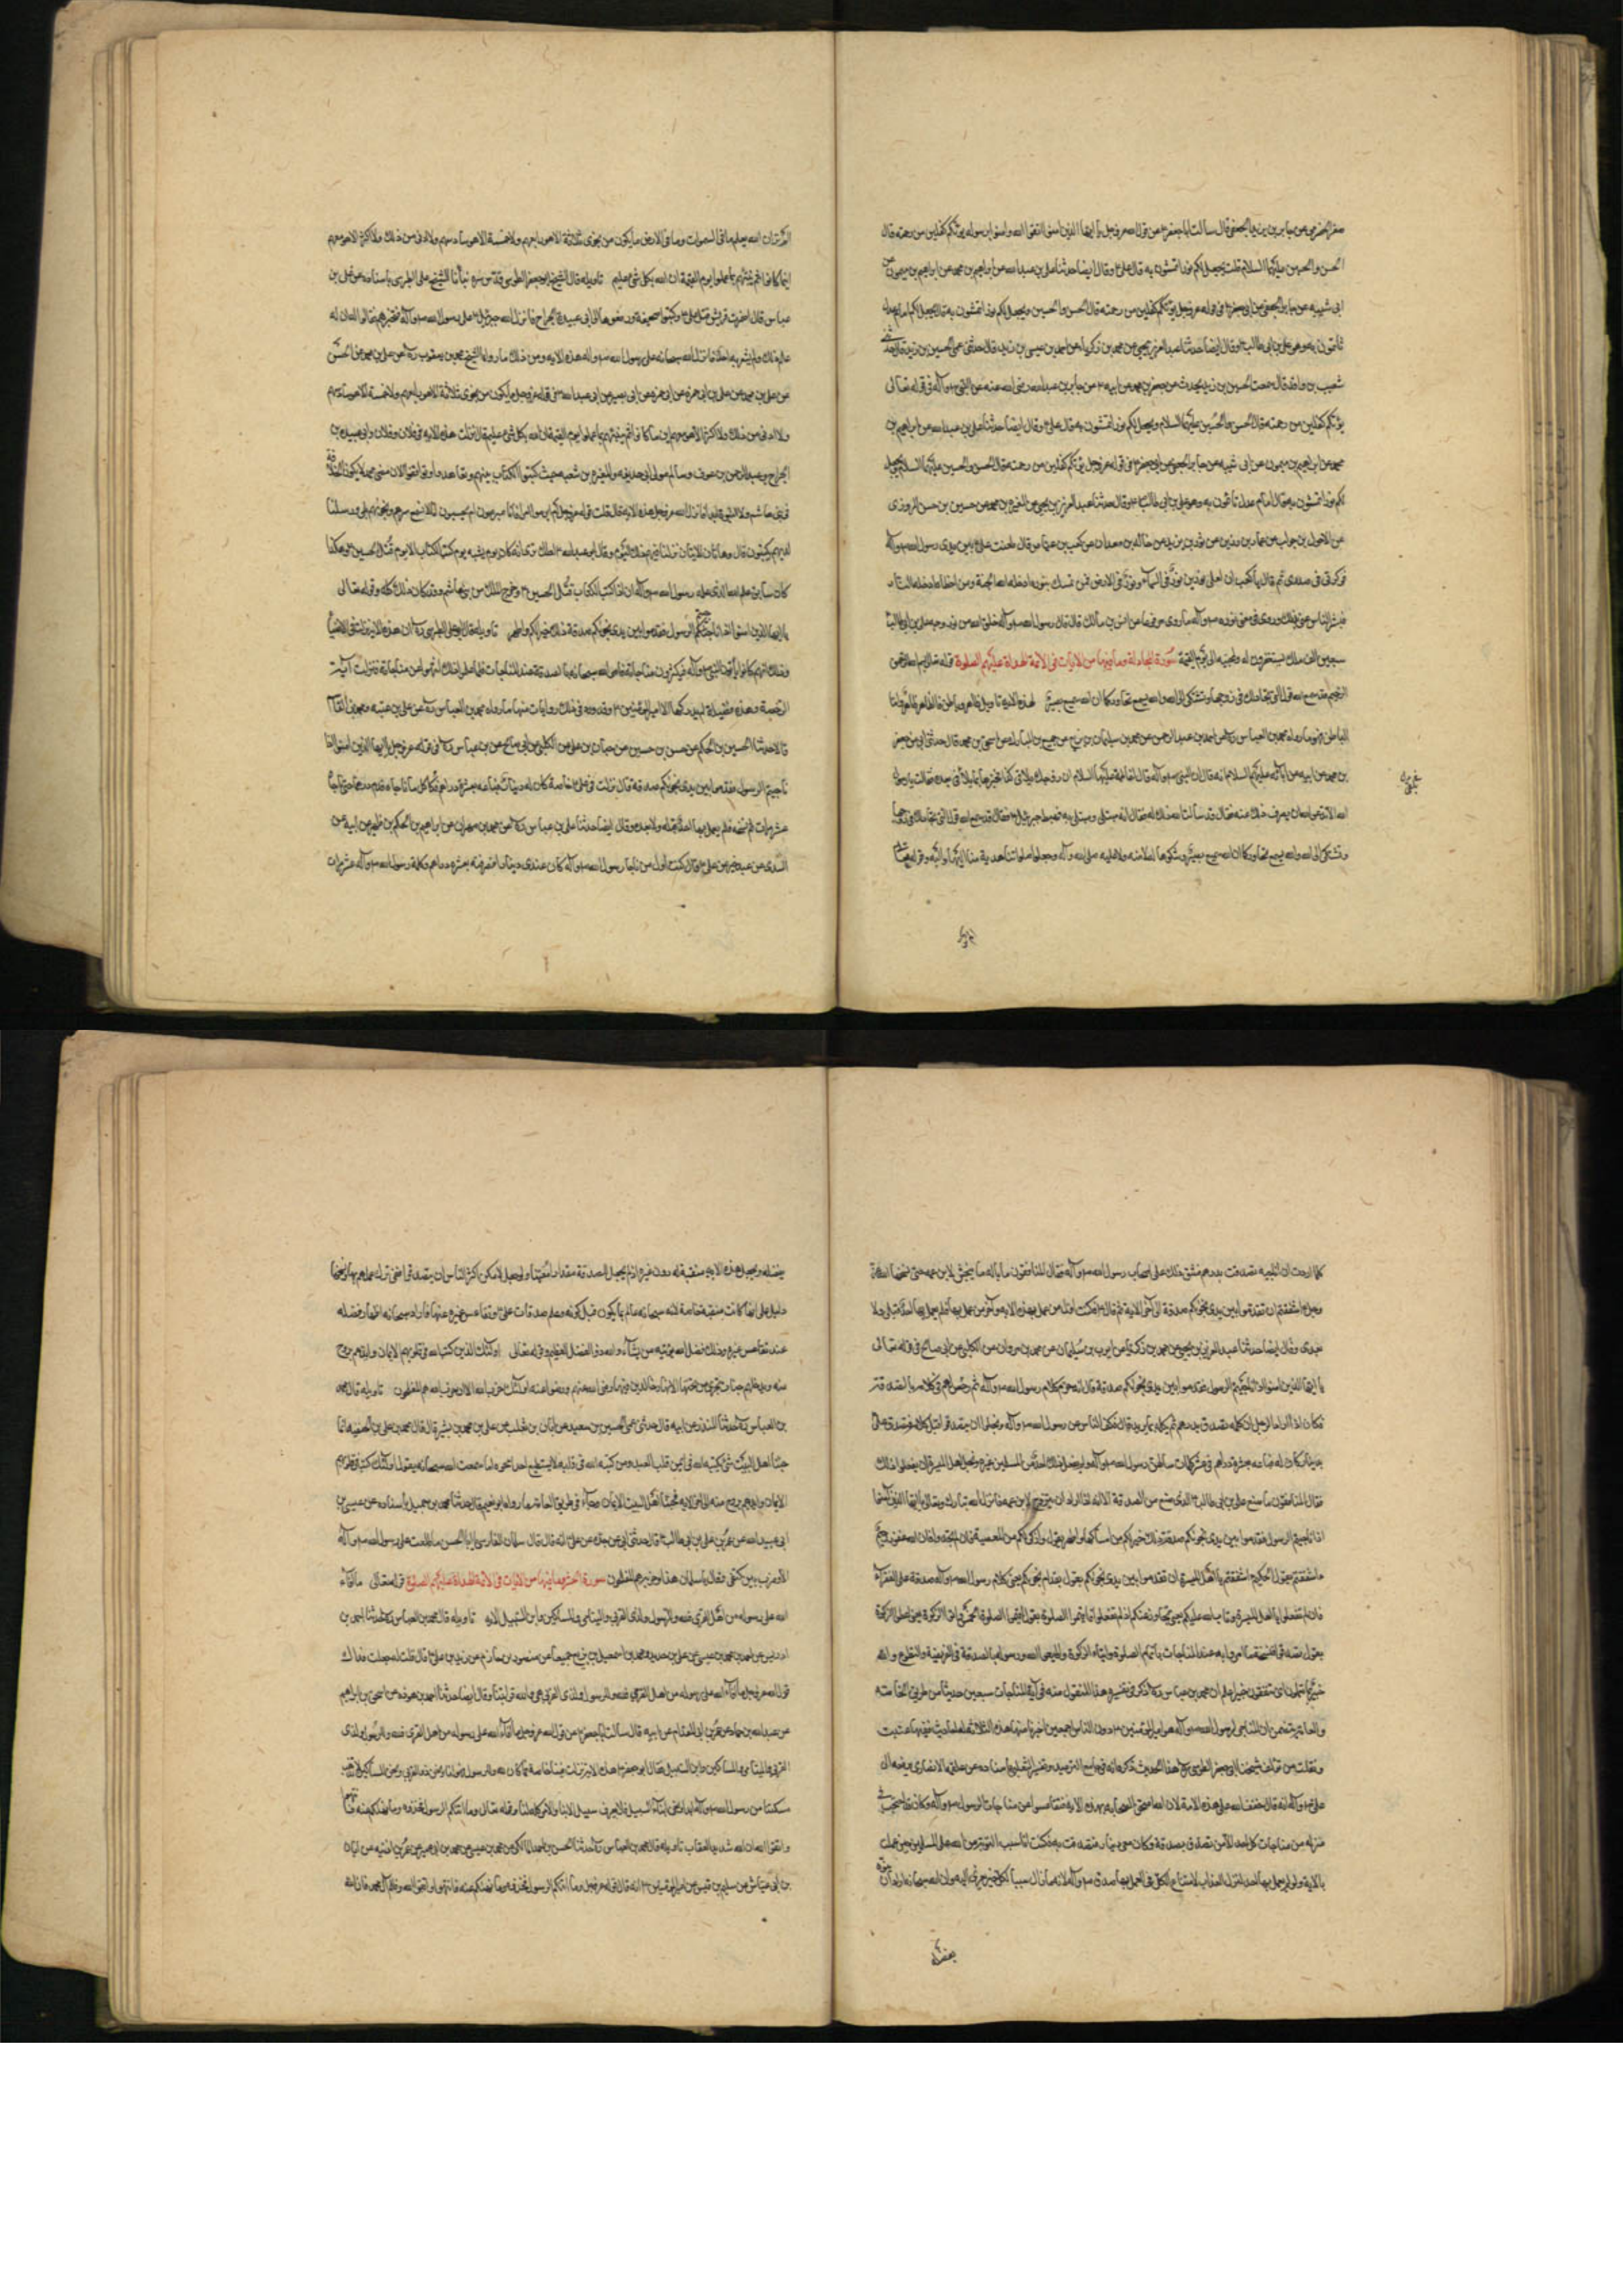 عن جابر بن يزيد الجعفي قال سالت ابا جعفر ع عن قول الله عز وجل يا ايها الذين امنوا اتقوا الله وامنوا برسوله يؤتكم كفلين من رحمته قال
الحسن والحسين عليهما السلام قلت ويجعل لكم نورا تمشون به قال علي ع وقال ايضا حدثنا علي بن عبد الله عن ابراهيم بن محمد عن ابراهيم بن ميمون عن
ابي شيبه عن جابر الجعفي عن ابي جعفر ع في قوله عز وجل يؤتكم كفلين من رحمته قال الحسن والحسين ويجعل لكم نورا تمشون به قال يجعل لكم امام عدل
تأتمون به وهو علي بن ابي طالب ع وقال ايضا حدثنا عبد العزيز بن يحيى عن محمد بن زكريا عن احمد بن عيسى بن زيد قال حدثني عمي الحسين بن زيد قال حدثني
شعيب بن واقد قال سمعت الحسين بن زيد يحدث عن جعفر بن محمد عن ابيه ع عن جابر بن عبد الله رضي الله عنه عن النبي ص وآله في قوله تعالى
يؤتكم كفلين من رحمته قال الحسن والحسين عليهما السلام ويجعل لكم نورا تمشون به قال علي ع وقال ايضا حدثنا علي بن عبد الله عن ابراهيم بن
محمد عن ابراهيم بن ميمون عن ابن ابي شيبه عن جابر الجعفي عن ابي جعفر ع في قوله عز وجل يؤتكم كفلين من رحمته قال الحسن والحسين عليهما السلام ويجعل
لكم نورا تمشون به قال امام عدل تأتمون به وهو علي بن ابي طالب ع وقال حدثنا عبد العزيز بن يحيى عن المغيرة بن محمد عن حسين بن حسن المروزي
عن الاحول بن جواب عن عمار بن رزيق عن ثور بن يزيد عن خالد بن معدان عن كعب بن عياض قال طعنت على علي ع بين يدي رسول الله ص وآله
فوكزني في صدري ثم قال يا كعب ان لعلي نورين نور في السماء ونور في الارض فمن تمسك بنوره ادخله الله الجنة ومن اخطأه ادخله النار
فبشر الناس عني بذلك وروى في معنى نوره ص وآله ما روي مرفوعا عن انس بن مالك قال قال رسول الله ص وآله خلق الله من نور وجه علي بن ابي طالب ع
سبعين الف ملك يستغفرون له ولمحبيه الى يوم القيمة سورة المجادلة وما فيها من الايات في الائمة الهداة عليهم الصلوة قوله تعالى بسم الله الرحمن
الرحيم قد سمع الله قول التي تجادلك في زوجها وتشتكي الى الله والله يسمع تحاوركما ان الله سميع بصير لهذه الاية تاويل ظاهر وباطن فالظاهر ظاهر واما
الباطن فهو ما رواه محمد بن العباس ره عن احمد بن عبد الرحمن عن محمد بن سليمان بن بزيع عن جميع بن المبارك عن اسحق بن محمد قال حدثني ابي عن جعفر
بن محمد عن ابيه عن آبائه عليهم السلام انه قال ان النبي ص وآله قال لفاطمة عليها السلام ان زوجك يلاقي بعدي كذا فخبرها بما يلاقي بعده فقالت يا رسول
الله الا تدعو الله ان يصرف ذلك عنه فقال قد سألت الله ذلك له فقال انه مبتلى ومبتلى به فهبط جبرئيل ع فقال قد سمع الله قول التي تجادلك في زوجها
وتشتكي الى الله والله يسمع تحاوركما ان الله سميع بصير وشكواها له لا منه ولا عليه صلى الله وآله وجعل صلواتنا هدية منا اليهما واليه وقوله تعالى
الم تر
الم تر ان الله يعلم ما في السموات وما في الارض ما يكون من نجوى ثلاثة الا هو رابعهم ولا خمسة الا هو سادسهم ولا ادنى من ذلك ولا اكثر الا هو معهم
اينما كانوا ثم ينبئهم بما عملوا يوم القيمة ان الله بكل شئ عليم تاويله قال الشيخ ابو جعفر الطوسي قدس سره
عباس قال علي ع وكتبوا صحيفة ودفعوها الى ابي عبيدة بن الجراح فانزل الله جبرئيل ع على رسول الله ص وآله فخبره
هذه الاية ومن ذلك ما رواه الشيخ محمد بن يعقوب ره عن علي بن محمد عن علي بن الحسين
عن علي بن ابي حمزة عن ابي بصير عن ابي عبد الله ع في قوله عز وجل ما يكون من نجوى ثلاثة الا هو رابعهم ولا خمسة الا هو سادسهم
ولا ادنى من ذلك ولا اكثر الا هو معهم اين ما كانوا ثم ينبئهم بما عملوا يوم القيمة ان الله بكل شئ عليم قال نزلت هذه الاية في فلان وفلان وابي عبيدة بن
الجراح وعبد الرحمن بن عوف وسالم مولى ابي حذيفه والمغيرة بن شعبه حيث كتبوا الكتاب بينهم وتعاهدوا وتوافقوا لان مضى محمد لا يكون الخلافة
في بني هاشم ولا النبوة فانزل الله عز وجل هذه الاية قال قلت قوله عز وجل ام ابرموا امرا فانا مبرمون ام يحسبون انا لا نسمع سرهم ونجويهم بلى ورسلنا
لديهم يكتبون قال وهاتان الايتان نزلتا فيهم ذلك اليوم وقال ابو عبد الله ع لعلك ترى انه كان يوم يشبه يوم كتب الكتاب الا يوم قتل الحسين ع وهكذا
كان سابق علم الله الذي علمه رسول الله ص وآله ان اذا كتب الكتاب قتل الحسين ع وخرج الملك من بني هاشم وقد كان ذلك كله وقوله تعالى
يا ايها الذين امنوا اذا ناجيتم الرسول فقدموا بين يدي نجويكم صدقة ذلك خير لكم واطهر تاويله قال ابو علي الطبرسي ره ان هذه الاية نزلت في الاغنيا
وذلك انهم كانوا يأتون النبي ص وآله فيكثرون مناجاته فامر الله سبحانه بالصدقة عند المناجات فلما علموا ذلك انتهوا عن مناجاته فنزلت آية
الرخصة وهذه فضيلة لم يدركها الا امير المؤمنين ع وقد ورد في ذلك روايات منها ما رواه محمد بن العباس ره عن علي بن عتبه ومحمد بن القاسم
قالا حدثنا الحسين بن الحكم عن حسن بن حسين عن حبان بن علي عن الكلبي عن ابي صالح عن بن عباس ره في قوله عز وجل يا ايها الذين امنوا اذا
ناجيتم الرسول فقدموا بين يدي نجويكم صدقة قال نزلت في علي ع خاصة كان له دينار فباعه بعشرة دراهم فكان كلما ناجاه قدم درهما حتى ناجاه
عشر مرات ثم نسخت فلم يعمل بها احد قبله ولا بعده وقال ايضا حدثنا علي بن عباس ره عن محمد بن مروان عن ابراهيم بن الحكم بن ظهير عن ابيه عن
السدي عن عبد خير عن علي ع قال كنت اول من ناجا رسول الله ص وآله كان عندي دينار فصرفته بعشره دراهم وكلمت رسول الله ص وآله عشر مرات
كلما اردت ان اناجيه تصدقت بدرهم فشق ذلك على اصحاب رسول الله ص وآله فقال المنافقون ما باله ما ينجش لابن عمه حتى نسخها الله عز
وجل ءاشفقتم ان تقدموا بين يدي نجويكم صدقة الى آخر الاية ثم قال ع فكنت اول من عمل بهذه الاية وآخر من عمل بها فلم يعمل بها احد قبلي ولا
بعدي وقال ايضا حدثنا عبد العزيز بن يحيى عن محمد بن زكريا عن ايوب بن سليمان عن محمد بن مروان عن الكلبي عن ابي صالح في قوله تعالى
يا ايها الذين امنوا اذا ناجيتم الرسول فقدموا بين يدي نجويكم صدقة قال انه حرم كلام رسول الله ص وآله ثم رخص لهم في كلامه بالصدقة
فكان اذا اراد الرجل ان يكلمه تصدق بدرهم ثم كلمه بما يريد قال فكف الناس عن رسول الله ص وآله وبخلوا ان يتصدقوا قبل كلامه فتصدق علي ع
بدينار كان له فباعه بعشرة دراهم في عشر كلمات سألهن رسول الله ص وآله ولم يفعل ذلك احد من المسلمين غيره وبخل اهل الميسرة ان يفعلوا ذلك
فقال المنافقون ما صنع علي بن ابي طالب ع الذي صنع من الصدقة الا انه اراد ان يتروج لابن عمه فانزل الله تبارك وتعالى يا ايها الذين آمنوا
اذا ناجيتم الرسول فقدموا بين يدي نجويكم صدقة ذلك خير لكم من امساكها واطهر يقول وازكى لكم من المعصية فان لم تجدوا فان الله غفور رحيم
ءاشفقتم يقول الحكيم ءاشفقتم يا اهل الميسرة ان تقدموا بين يدي نجويكم يقول قدام نجويكم يعني كلام رسول الله ص وآله صدقة على الفقراء
فان لم تفعلوا يا اهل الميسرة وتاب الله عليكم يعني تجاوز عنكم اذ لم تفعلوا فاقيموا الصلوة يقول اقيموا الصلوة الخمس واتوا الزكوة يعني اعطوا الزكوة
يقول تصدقوا فنسخت ما امروا به عند المناجات باتمام الصلوة وايتاء الزكوة واطيعوا الله ورسوله بالصدقة في الفريضة والتطوع والله
خبير بما تعملون اي تنفقون خيرا اعلم ان محمد بن عباس ره ذكر في تفسيره هذا المنقول منه في آية المناجات سبعين حديثا من طريق الخاصة
والعامة يتضمن ان المناجي لرسول الله ص وآله هو امير المؤمنين ع دون الناس اجمعين اخترنا منها هذه الثلاثة احاديث ففيها
ونقلت من مؤلف شيخنا ابي جعفر الطوسي ره هذا الحديث ذكر انه في جامع الترمذي وتفسير الثعلبي باسناده عن علقمه الانماري يرفعه الى
علي ع انه قال بي خفف الله على هذه الامة لان الله امتحن الصحابة بهذه الاية فتقاعسوا عن مناجات الرسول ص وآله وكان قد احتجب في
منزله من مناجات كل احد الا من تصدق بصدقة وكان معي دينار فتصدقت به فكنت انا سبب التوبة من الله على المسلمين حين عملت
بالاية ولو لم يعمل بها احد لنزل العذاب لامتناع الكل من العمل بها صدق ص وآله لانه ما زال سببا لكل خير
بفضله
بفضله ويجعل هذه الاية منقبة له دون غيره اذ لم يجعل للصدقة مقدارا معينا ولو جعل لامكن اكثر الناس ان يتصدقوا
دليل على انها كانت منقبة خاصة لانه سبحانه عالم بما يكون قبل كونه وعلم صدقات علي ع وتقاعس غيره عنها فاراد سبحانه اظهار فضله
عند تقاعس غيره وذلك فضل الله يؤتيه من يشاء والله ذو الفضل العظيم وقوله تعالى اولئك الذين كتب الله في قلوبهم الايمان وايدهم بروح
منه ويدخلهم جنات تجري من تحتها الانهار خالدين فيها رضي الله عنهم ورضوا عنه اولئك حزب الله الا ان حزب الله هم المفلحون تاويله قال محمد
بن العباس ره حدثنا المنذر عن ابيه قال حدثني عمي الحسين بن سعيد عن ابان بن تغلب عن علي بن محمد بن بشر قال قال محمد بن علي بن الحنفيه انما
حبنا اهل البيت شئ يكتبه الله في ايمن قلب العبد ومن كتبه الله في قلبه لا يستطيع احد محوه اما سمعت الله سبحانه يقول اولئك كتب في قلوبهم
الايمان وايدهم بروح منه الى آخر الاية فحبنا اهل البيت الايمان وجاء في طريق العامة ما رواه ابو نعيم قال حدثنا محمد بن حميد باسناده عن عيسى بن
عبد الله بن عبيد الله بن عمر بن علي بن ابي طالب ع قال حدثني ابي عن جده عن علي ع انه قال قال سلمان الفارسي يا ابا الحسن ما طلعت على رسول الله ص وآله
الا وضرب بين كتفي وقال يا سلمان هذا وحزبه هم المفلحون سورة الحشر وما فيها من الايات في الائمة الهداة عليهم الصلوة قوله تعالى ما افاء
الله على رسوله من اهل القرى فلله وللرسول ولذي القربى واليتامى والمساكين وابن السبيل الاية تاويله قال محمد بن العباس ره حدثنا احمد بن
ادريس عن احمد بن محمد بن عيسى عن علي بن حديد ومحمد بن اسمعيل بن بزيع جميعا عن منصور بن حازم عن زيد بن علي ع قال قلت له جعلت فداك
قول الله عز وجل ما افاء الله على رسوله من اهل القرى فلله وللرسول ولذي القربى قال القربى هي والله قرابتنا وقال ايضا حدثنا احمد بن هوذه عن اسحق بن ابراهيم
عن عبد الله بن حماد عن عمرو بن ابي المقدام عن ابيه قال سالت ابا جعفر ع عن قول الله عز وجل ما افاء الله على رسوله من اهل القرى فلله وللرسول ولذي
القربى واليتامى والمساكين وابن السبيل فقال ابو جعفر ع هذه الاية نزلت فينا خاصة فما كان لله وللرسول فهو لنا ونحن ذو القربى ونحن المساكين لا تذهب
مسكنتنا من رسول الله ص وآله ابدا ونحن ابناء السبيل فلا يعرف سبيل الا بنا والامر كله لنا وقوله تعالى وما اتيكم الرسول فخذوه وما نهيكم عنه فانتهوا
واتقوا الله ان الله شديد العقاب تاويله قال محمد بن العباس ره حدثنا الحسن بن احمد المالكي عن محمد بن عيسى عن محمد بن ابي عمير عن عمر بن اذينه عن ابان
بن ابي عياش عن سليم بن قيس عن امير المؤمنين ع انه قال قوله عز وجل وما اتيكم الرسول فخذوه وما نهيكم عنه فانتهوا واتقوا الله وظلم آل محمد فان الله